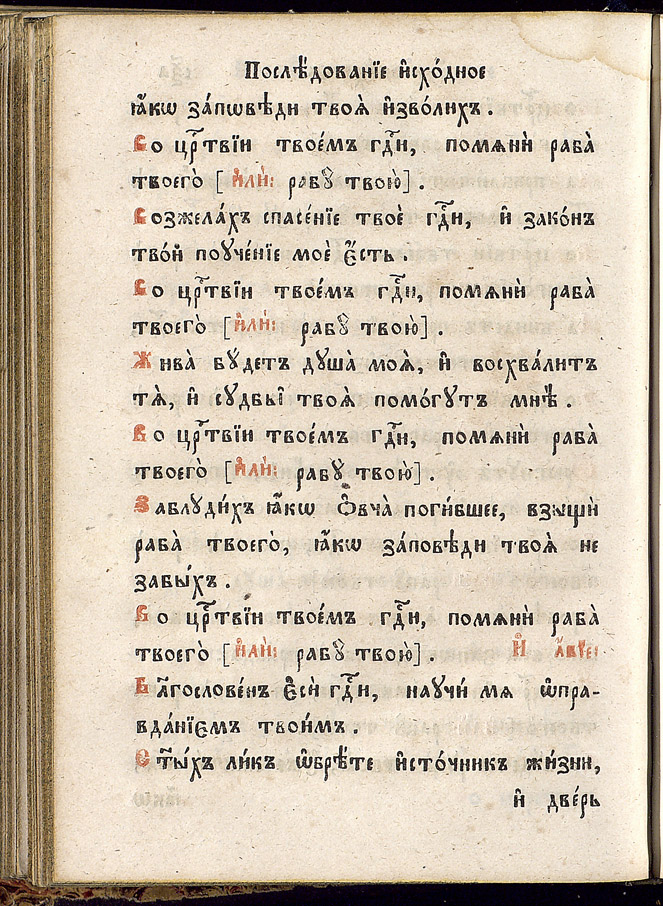 Послѣ́дованїе и҆схо́дное
ꙗ҆́кѡ за́пѡвѣди твоѧ̀ и҆зво́лихъ.
Во црⷭ҇твїи твое́мъ гдⷭ҇и, помѧнѝ раба̀
твоего̀ [и҆лѝ: рабꙋ̀ твою̀].
Возжела́хъ спасе́нїе твоѐ гдⷭ҇и, и҆ зако́нъ
тво́й поꙋче́нїе моѐ є҆́сть.
Во црⷭ҇твїи твое́мъ гдⷭ҇и, помѧнѝ раба̀
твоего̀ [и҆лѝ: рабꙋ̀ твою̀].
Жива̀ бꙋ́детъ дꙋша̀ моѧ̀, и҆ восхва́литъ
тѧ̀, и҆ сꙋдьбы̑ твоѧ̀ помо́гꙋтъ мнѣ̀.
Во црⷭ҇твїи твое́мъ гдⷭ҇и, помѧнѝ раба̀
твоего̀ [и҆лѝ: рабꙋ̀ твою̀].
Заблꙋди́хъ ꙗ҆́кѡ ѻ҆вча̀ поги́бшее, взыщѝ
раба̀ твоего̀, ꙗ҆́кѡ за́повѣди твоѧ̀ не
забы́хъ.
Во црⷭ҇твїи твое́мъ гдⷭ҇и, помѧнѝ раба̀
твоего̀ [и҆лѝ: рабꙋ̀ твою̀]. И҆ а҆́бїе:
Бл҃гослове́нъ є҆сѝ гдⷭ҇и, наꙋчи́ мѧ ѡ҆пра-
вда́нїємъ твои̑мъ.
Ст҃ы́хъ ли́къ ѡ҆брѣ́те и҆сто́чникъ жи́зни,
и҆ две́рь